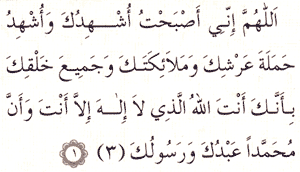 اَللَّهُمَّ إِنِّي أَصْبَحْتُ أُشْهِدُكَ وَأُشْهِدُ
حَمَلَةَ عَرْشِكَ وَمَلاَئِكَتَكَ وَجَمِيعَ خَلْقِكَ
بِأَنَّكَ أَنْتَ اللهُ الَّذِي لاَ إِلٰهَ إِلاَّ أَنْتَ وَأَنَّ
مُحَمَّداً عَبْدُكَ وَرَسُولُكَ (٣) ١